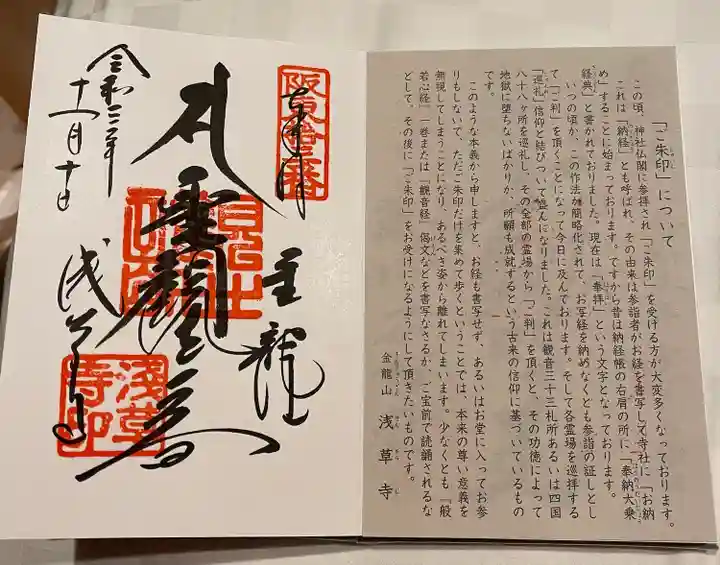 「ご朱印」について
この頃、神社仏閣に参拝され「ご朱印」を受ける方が大変多くなっております。
これは「納経」とも呼ばれ、その由来は参詣者がお経を書写して寺社に「お納
め」することに始まっております。ですから昔は納経帳の右肩の所に「奉納大乗
経典」と書かれておりました。現在は、「奉拝」という文字となっております。
いつの頃か、この作法が簡略化されて、お写経を納めなくとも参詣の証しとし
て「ご判」を頂くことになって今日に及んでおります。そして各霊場を巡拝する
「巡礼」信仰と結びついて盛んになりました。これは観音三十三札所あるいは四国
八十八ヶ所を巡礼し、その全部の霊場から「ご判」を頂くと、その功徳によって
地獄に堕ちないばかりか、所願も成就するという古来の信仰に基づいているもの
です。
このような本義から申しますと、お経も書写せず、あるいはお堂に入ってお参
りもしないで、ただご朱印だけを集めて歩くということでは、本来の尊い意義を
無視してしまうことになり、あるべき姿から離れてしまいます。少なくとも『般
若心経』一巻または『観音経』偈文などを書写なさるか、ご宝前で読誦されるな
どして、その後に「ご朱印」をお受けになるようにして頂きたいものです。
金龍山 浅草寺
阪東拾三番
奉拝
金龍山
聖観世音
浅草寺
淺草寺印
十一月十日